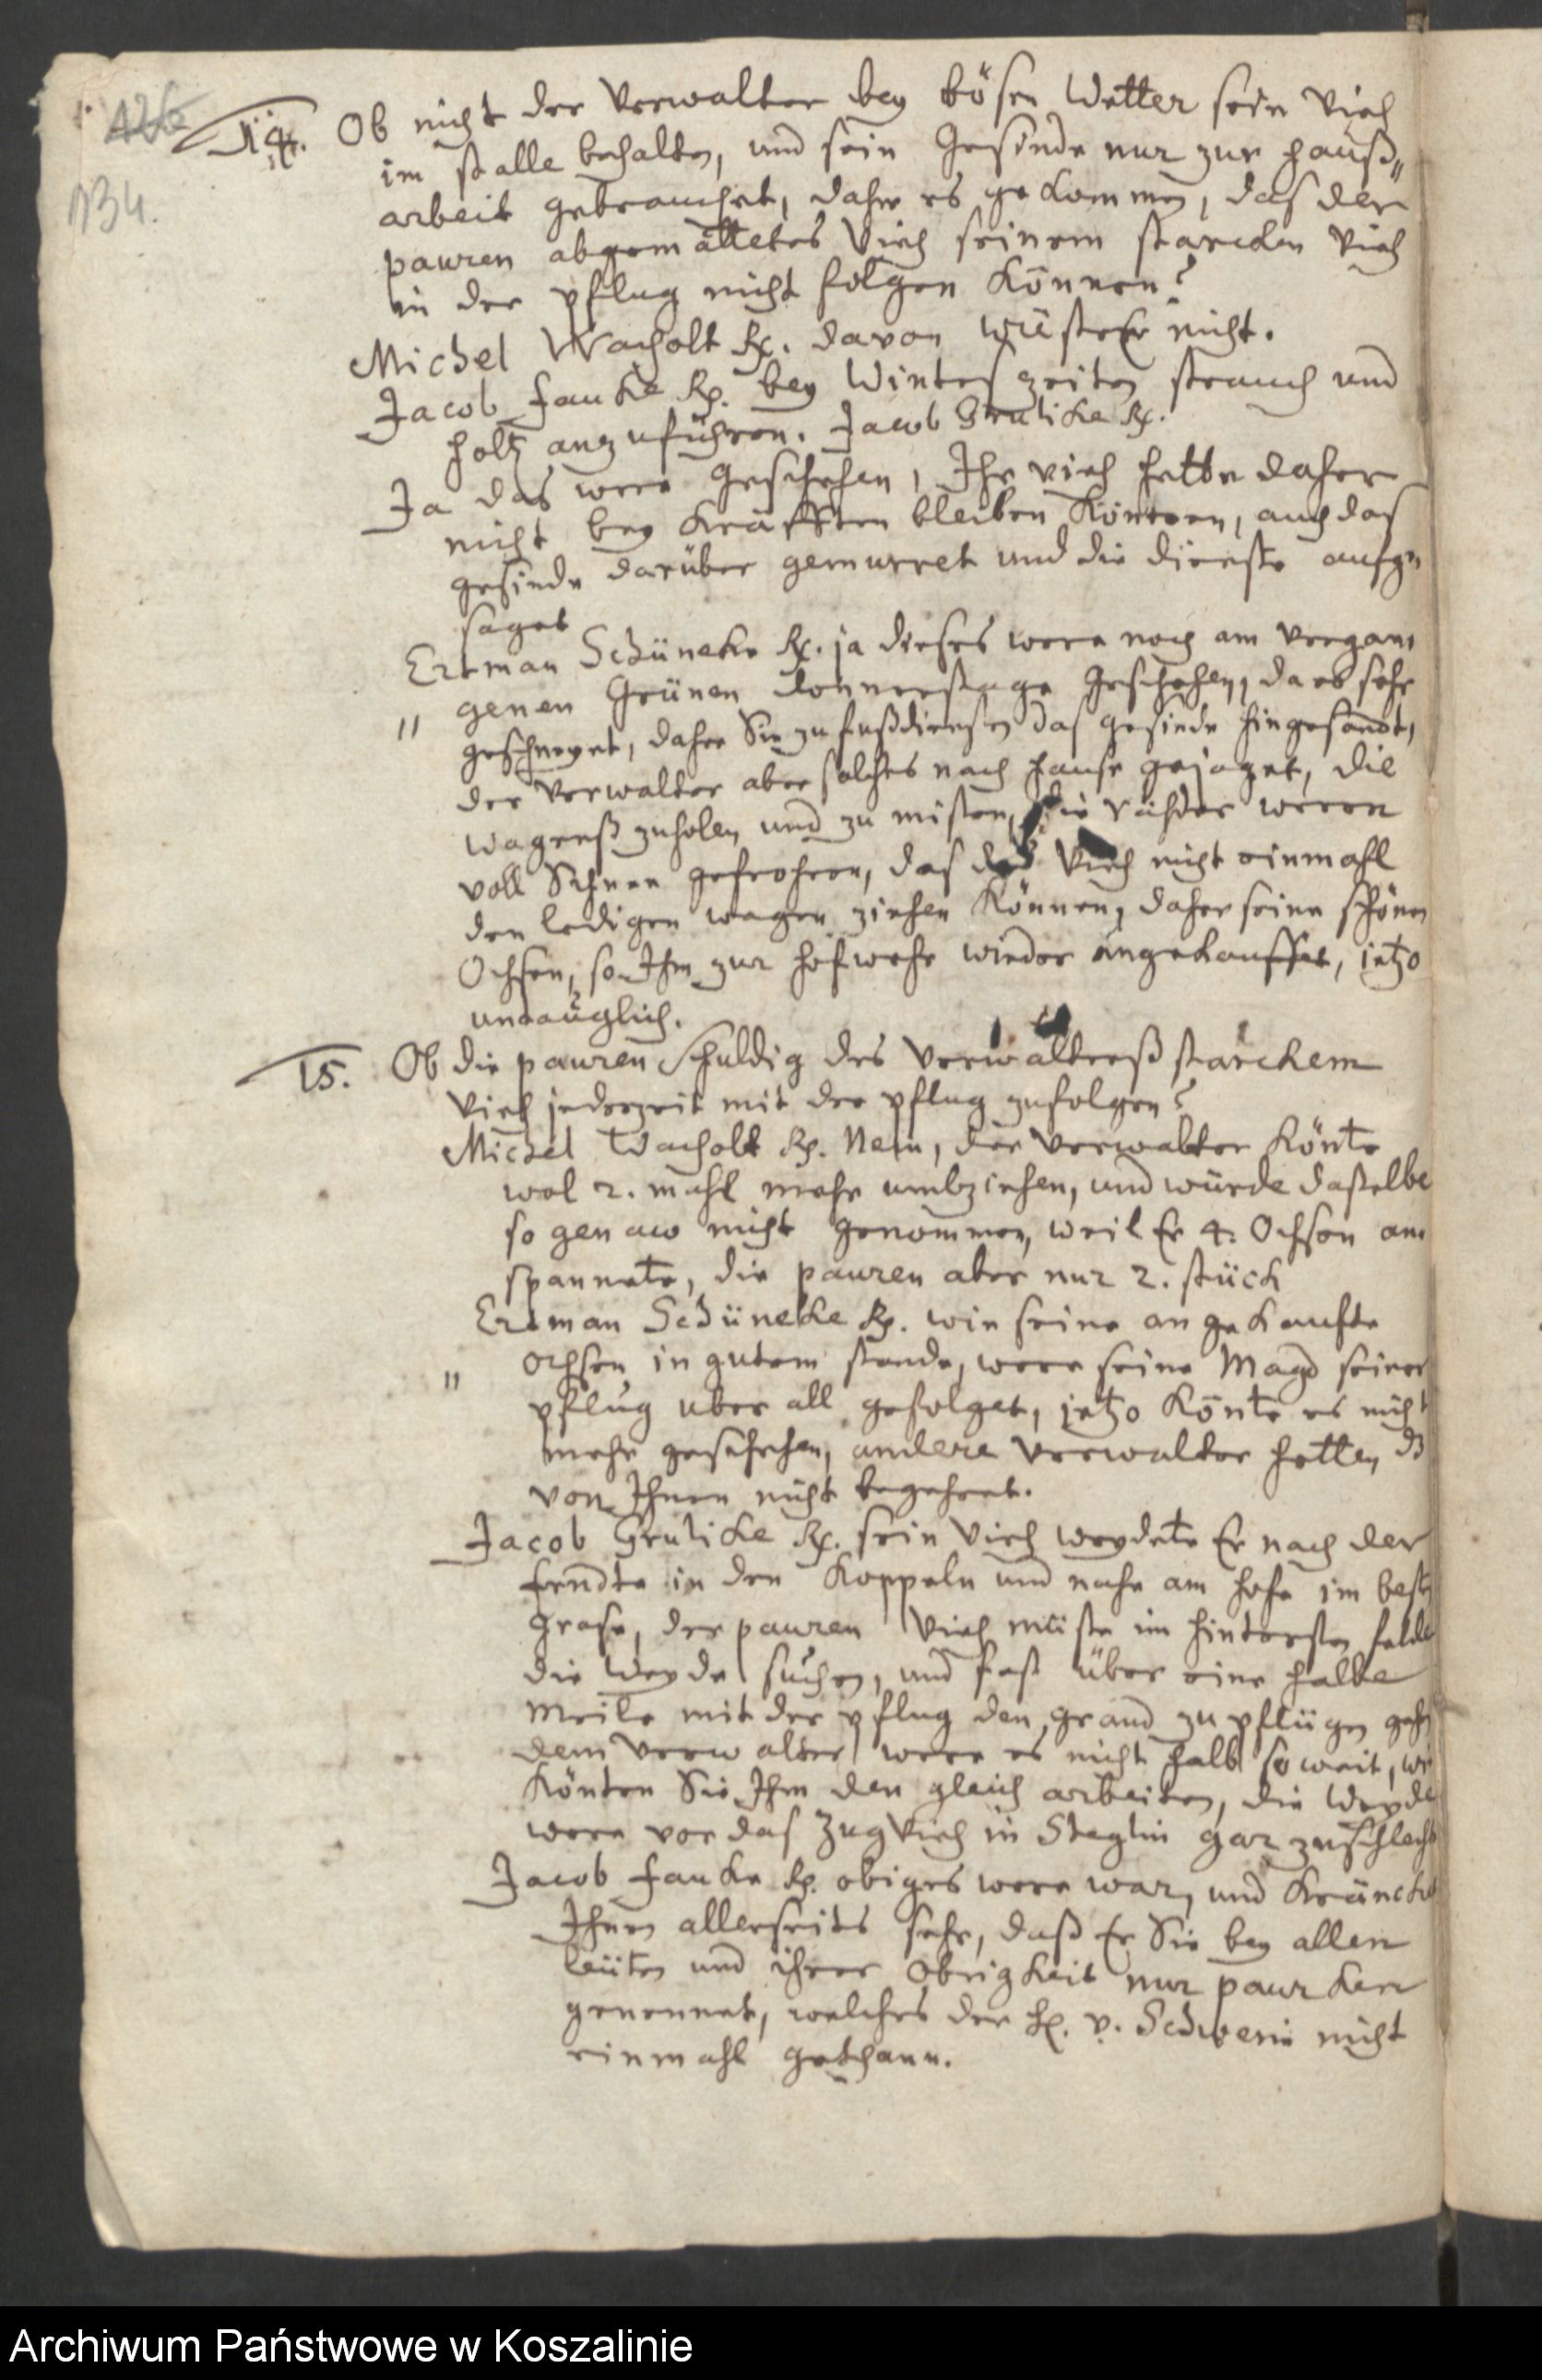 126
134.
14. Ob nicht der Verwalter bey bösen Wetter sein Vieh
im stalle behalten, und sein Gesinde nur zur hauß„
arbeit gebrauchet, daher es gekommen, das der
pauren abgemattetes Vieh seinem starcken Vieh
in der pflug nicht folgen können?
Michel Wacholt Rx. davon wüste Er nicht.
Jacob Fauke Rx. bey Winters zeiten strauch und
holtz anzuführen. Jacob Grulike Rx.
Ja das were geschehen, Ihr vieh hette daher
nicht bey kräfften bleiben können, auch das
gesinde darüber gemurret und die dienste aufge
saget
Ertman Schüneke Rx. ja dieses were noch am vergan„
genen Grünen donnerstage geschehen, da es sehr
geschneyet, daher Sie zu fußdiensten das gesinde hingesandt,
der Verwalter aber solches nach hause gejaget, die
wagens zuholen und zu misten, die räder weren
voll Schnee gefrohren, das das Vieh nicht einmahl
den ledigen wagen ziehen können, daher seine schönen
Ochsen, so Ihm zur hofwehr wieder angekauffet, jetzo
untauglich.
15. Ob die pauren schuldig des Verwalterß starckem
Vieh jederzeit mit der pflug zufolgen?
Michel Wacholt Rx. Nein, der Verwalter könte
wol 2. mahl mehr umbziehen, und würde daßelbe
so genaw nicht genommen, weil Er 4. Ochsen an„
spannete, die pauren aber nur 2. stück
Ertman Schüneke Rx. wie seine angekaufte
" ochsen in gutem stande, were seine Magd seiner
pflug uber all gefolget, jetzo könte es nicht
mehr geschehen, andere Verwalter hetten dz
von Ihnen nicht begehret.
Jacob Grulike Rx. sein Vieh weydete Er nach der
Erndte in den Koppeln und nahe am hofe im besten
Grase, der pauren Vieh müste im hintersten felde
die Weyde suchen, und fast über eine halbe
Meile mit der pflug den grand zu pflügen gehn
dem Verwalter were es nicht halb so weit, wie
könten Sie Ihm den gleich arbeiten, die Weyde
were vor das Zugvieh in Steglin gar zu schlecht
Jacob Fauke Rx. obiges were war, und kränckte
Ihnen allerseits sehr, daß Er Sie bey allen
leuten und ihrer Obrigkeit nur paurker
genennet, welches der H. v. Schwerin nicht
einmahl gethann.
Archiwum Państwowe w Koszalinie